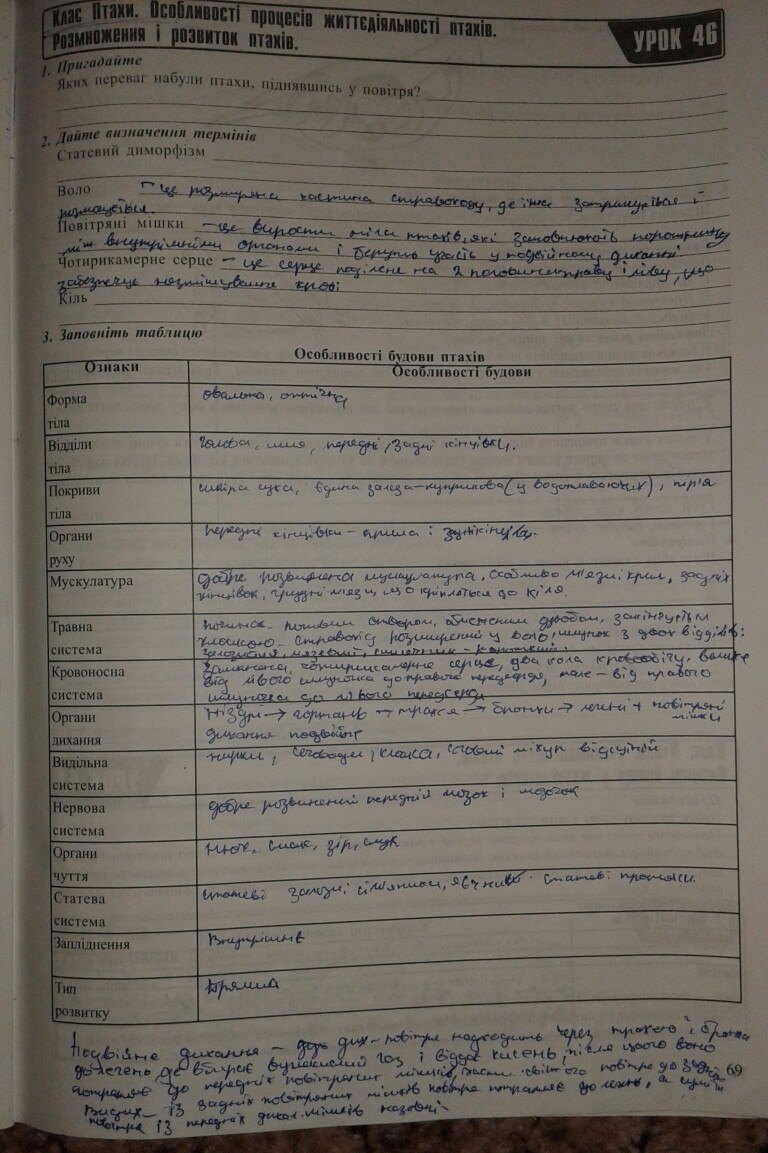 Клас Птахи. Особливості процесів життєдіяльності птахів.
Розмноження і розвиток птахів.
УРОК 46
1. Пригадайте
Яких переваг набули птахи, піднявшись у повітря?
2. Дайте визначення термінів
Статевий диморфізм
Воло – це розширена частина стравоходу, де їжа затримується і
розмочується.
Повітряні мішки – це вирости тіла птахів, які заповнюють порожнину
між внутрішніми органами і беруть участь у подвійному диханні
Чотирикамерне серце – це серце поділене на 2 половини праву і ліву, що
забезпечує незмішування крові
Кіль
3. Заповніть таблицю
Особливості будови птахів
Ознаки Особливості будови
Форма тіла овальна,
Відділи тіла голова, шия, передні, задні кінцівки.
Покриви тіла шкіра суха, єдина залоза – куприкова (у водоплаваючих), пір'я
Органи руху передні кінцівки – крила і
Мускулатура добре розвинена мускулатура, особливо м'язи крил, задніх
кінцівок, грудні м'язи, що кріпляться до кіля.
Травна система ротовим отвором, дзьобом,
клоакою. Стравохід розширений у воло, шлунок з двох відділів:
залозистий, мязевий, кишечник – короткий.
Кровоносна система Замкнена, чотирикамерне серце, два кола кровообігу, велике
від лівого шлуночка до правого передсердя, мале – від правого
шлуночка до лівого передсердя
Органи дихання Ніздрі → гортань → трахея → бронхи → легені + повітряні
мішки
дихання подвійне
Видільна система нирки, сечоводи, клоака, сечовий міхур відсутній
Нервова система добре розвинений передній мозок і мозочок
Органи чуття нюх, смак, зір, слух
Статева система статеві залози: сім'яники, яєчник. статеві протоки
Запліднення Внутрішнє
Тип розвитку Прямий
Подвійне дихання – повітря надходить через трахею і бронхи
до легень де вбирає вуглекислий газ і віддає кисень, після цього воно
потрапляє до передніх повітряних мішків, частина свіжого повітря до задніх
Видих – із задніх повітряних мішків повітря потрапляє до легень, а
повітря із передніх мішків назовні.
69